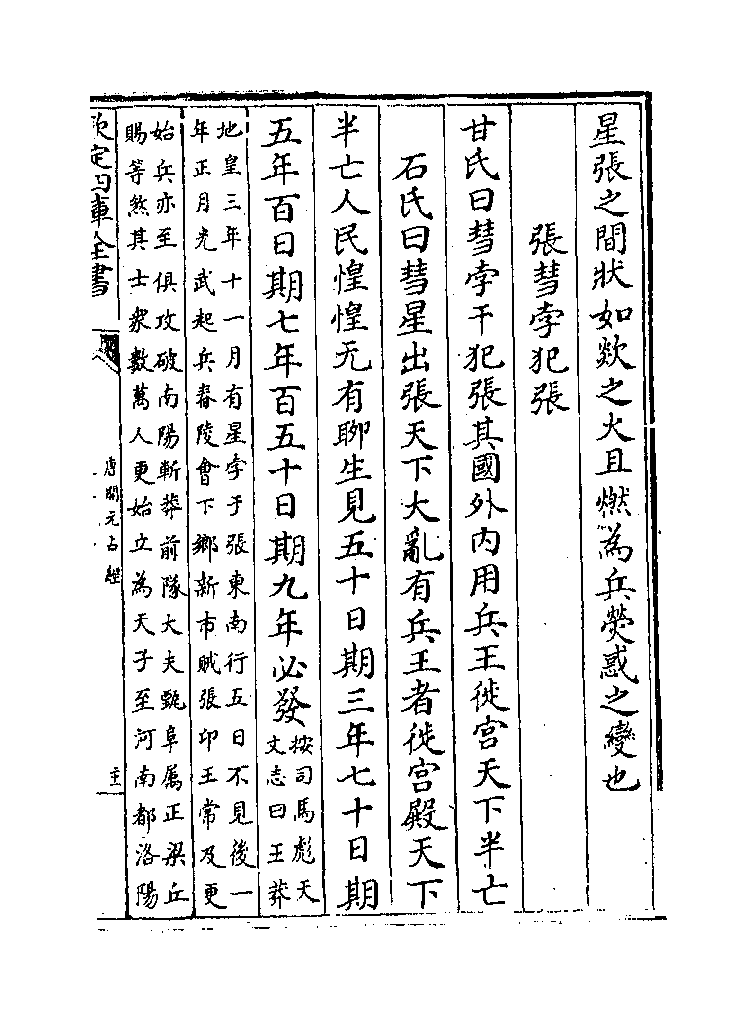 星張之間狀如欻之火且燃為兵熒惑之變也
張彗孛犯張
甘氏曰彗孛干犯張其國外内用兵王徙宫天下半亡
石氏曰彗星出張天下大亂有兵王者徙宫殿天下
半亡人民惶惶无有聊生見五十日期三年七十日期
五年百日期七年百五十日期九年必發
按司馬彪天
文志曰王莽
地皇三年十一月有星孛于張東南行五日不見後一
年正月光武起兵舂陵會下鄉新市賊張卬王常及更
始兵亦至俱攻破南陽斬莽前隊大夫甄阜属正梁丘
賜等煞其士衆數萬人更始立為天子至河南都洛陽
欽定四庫全書
唐開元占經